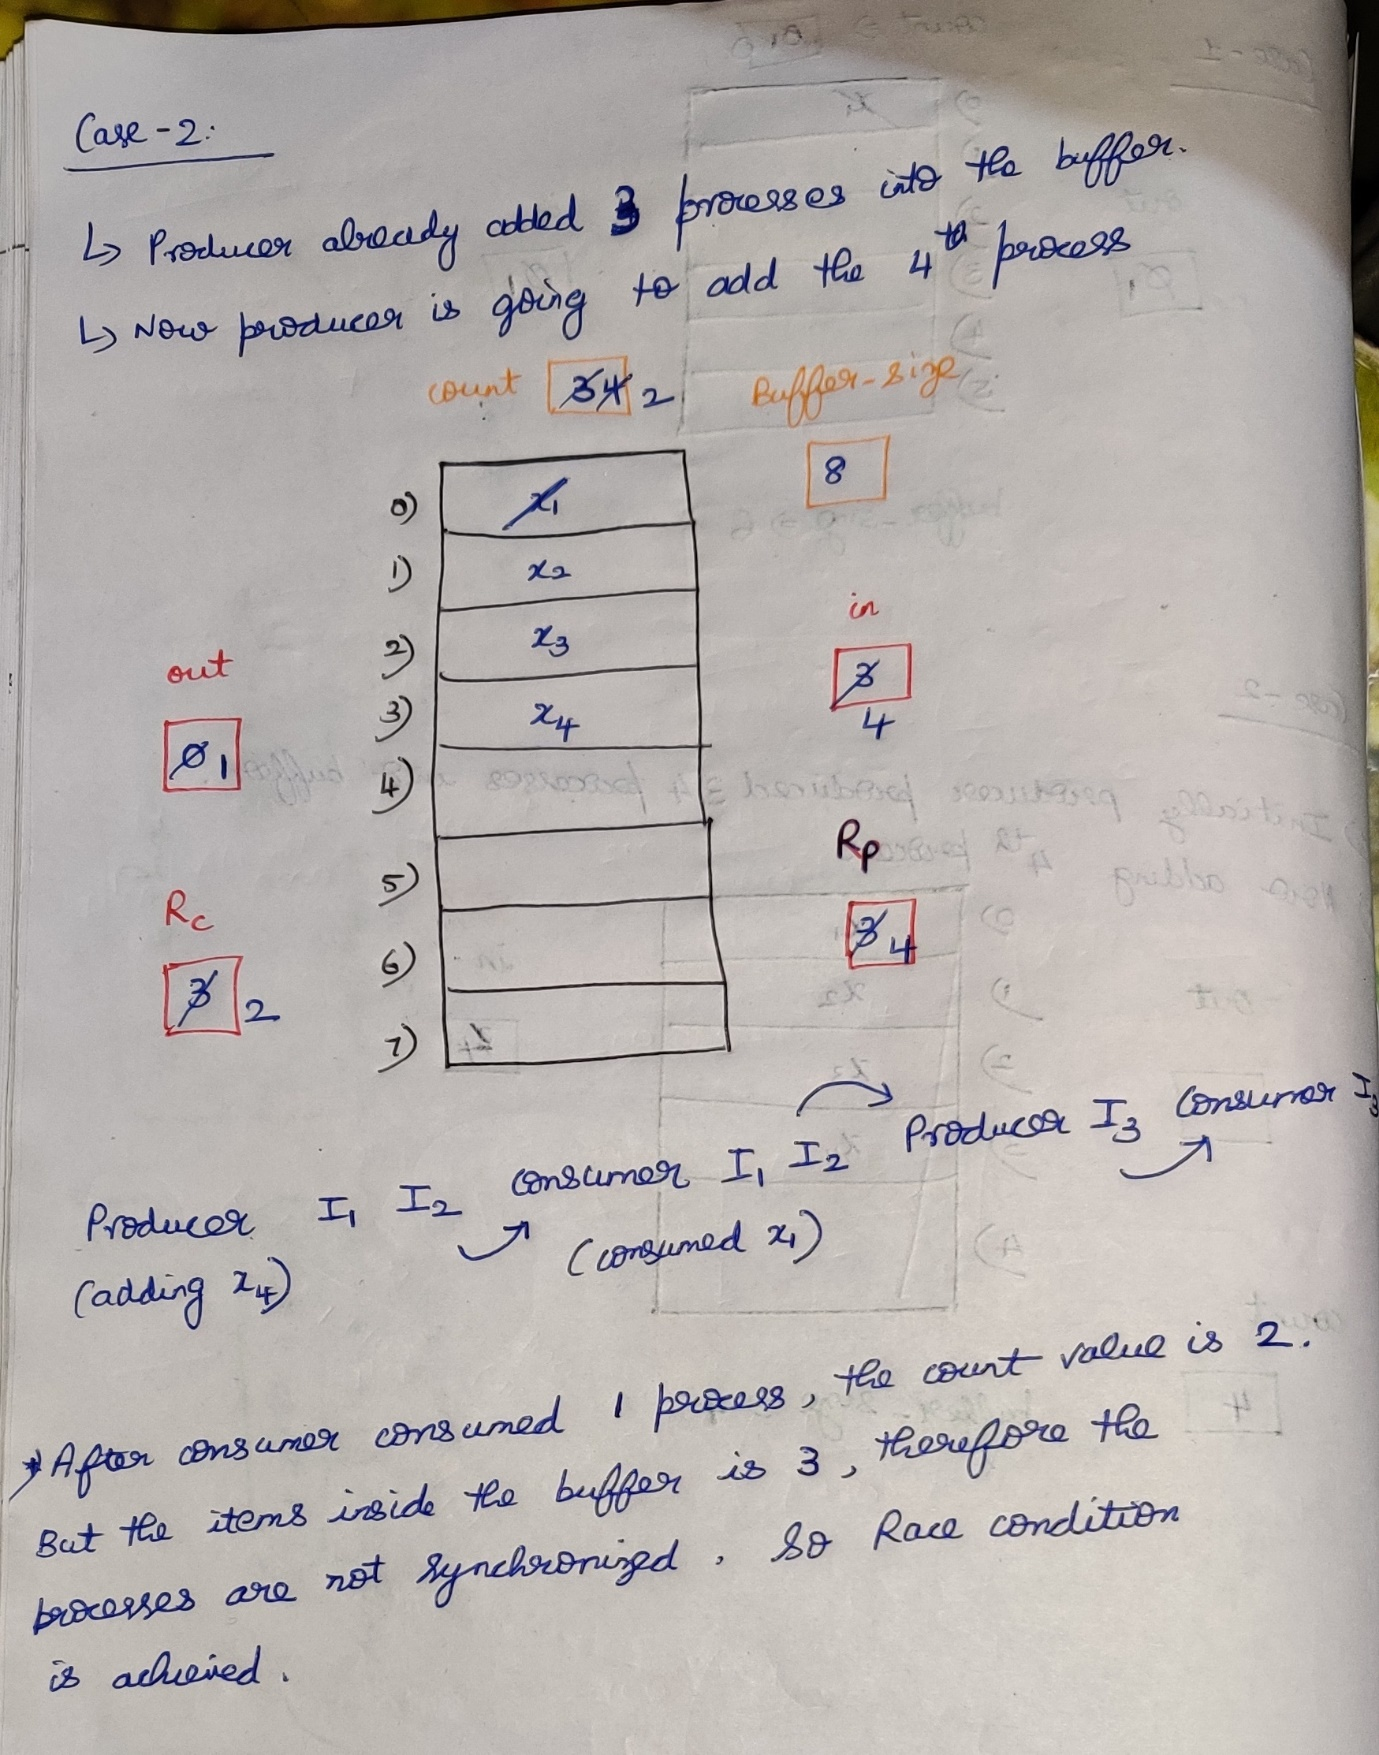 Case-2:
↳ Producer already added 3 processes into the buffer.
↳ Now producer is going to add the 4th process
count 3 4 2 Buffer-size
8
0) x1
1) x2
in
2) x3
out
3
3) x4
4
0 1
4)
Rp
5)
Rc
3 4
6)
3 2
7)
Producer I1 I2 consumer I1 I2 Producer I3 consumer I3
(adding x4) (consumed x1)
* After consumer consumed 1 process, the count value is 2.
But the items inside the buffer is 3, therefore the
processes are not synchronized. So Race condition
is achieved.